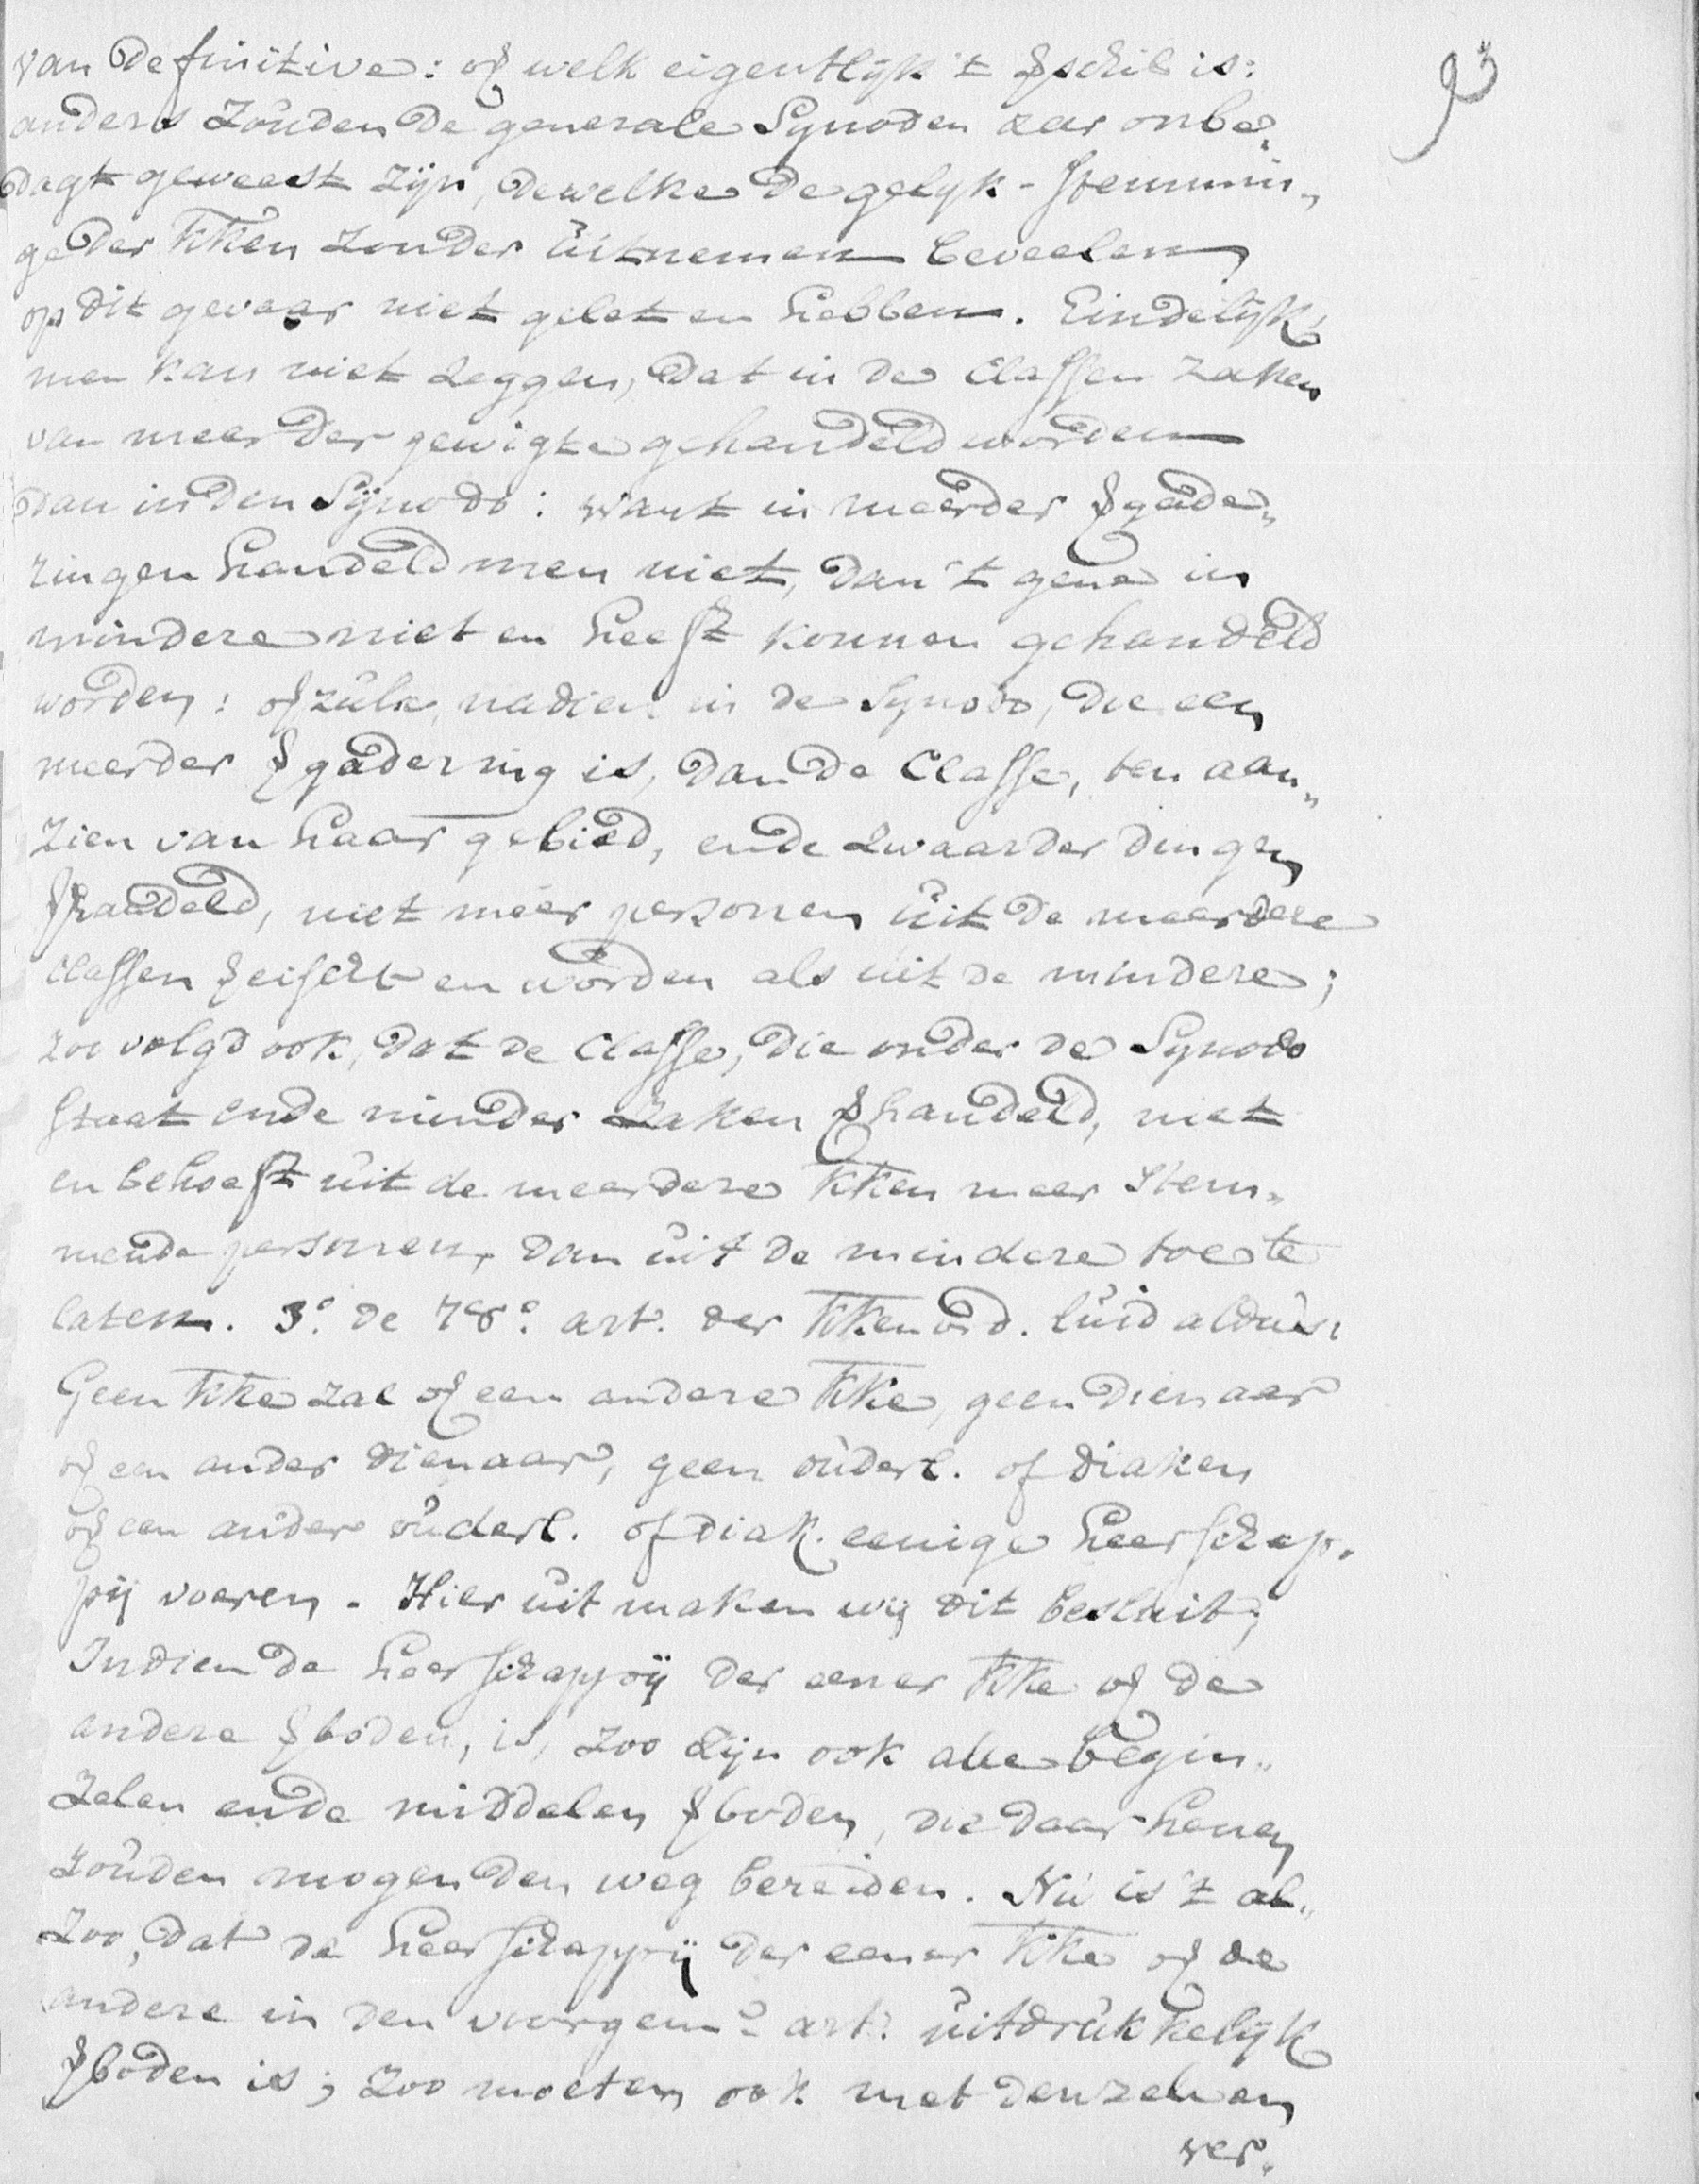 93
van Definitive: of welk eigentlijk 't ꝟschil is:
anders zouden de generale Synoden zeer onbe„
dagt geweest zijn, dewelke de gelijk-stemmin„
ge der kken zonder uitnemen beveelen
op dit gevaar niet gelet en hebben. Eindelijk,
men kan niet zeggen, dat in de Classen zaken
van meerder gewigte gehandeld worden
dan in den Synodo: want in meerder ꝟgade„
ringen handeld men niet, dan 't gene in
mindere niet en heeft konnen gehandeld
worden: of zulx, nadien in de Synodo, die een
meerder ꝟgadering is, dan de Classe, ten aan„
zien van haar gebied, ende zwaarder dingen
ꝟhandeld, niet meer personen uit de meerdere
classen ꝟeischt en worden als uit de mindere;
zoo volgd ook, dat de Classe, die onder de Synodo
staat ende minder zaken ꝟhandeld, niet
en behoeft uit de meerdere kken meer stem„
mende personen, dan uit de mindere toe te
laten. 3.° de 78.° art. der kkenord. luid aldus:
Geen kke zal oꝟ een andere kke, geen dienaar
oꝟ een ander dienaar, geen ouderl. of diaken
oꝟ een ander ouderl. of diak. eenige heerschap„
pij voeren. Hier uit maken wij dit besluit;
Indien de heerschappij der eener kke oꝟ de
andere ꝟboden, is, zoo zijn ook alle begin„
zelen ende middelen ꝟboden, die daar henen
zouden mogen den weg bereiden. Nu is 't al„
zoo, dat de heerschappij der eener kke oꝟ de
andere in den voorgem.e art. uitdrukkelijk
ꝟboden is; zoo moeten ook met denzelven
ver„